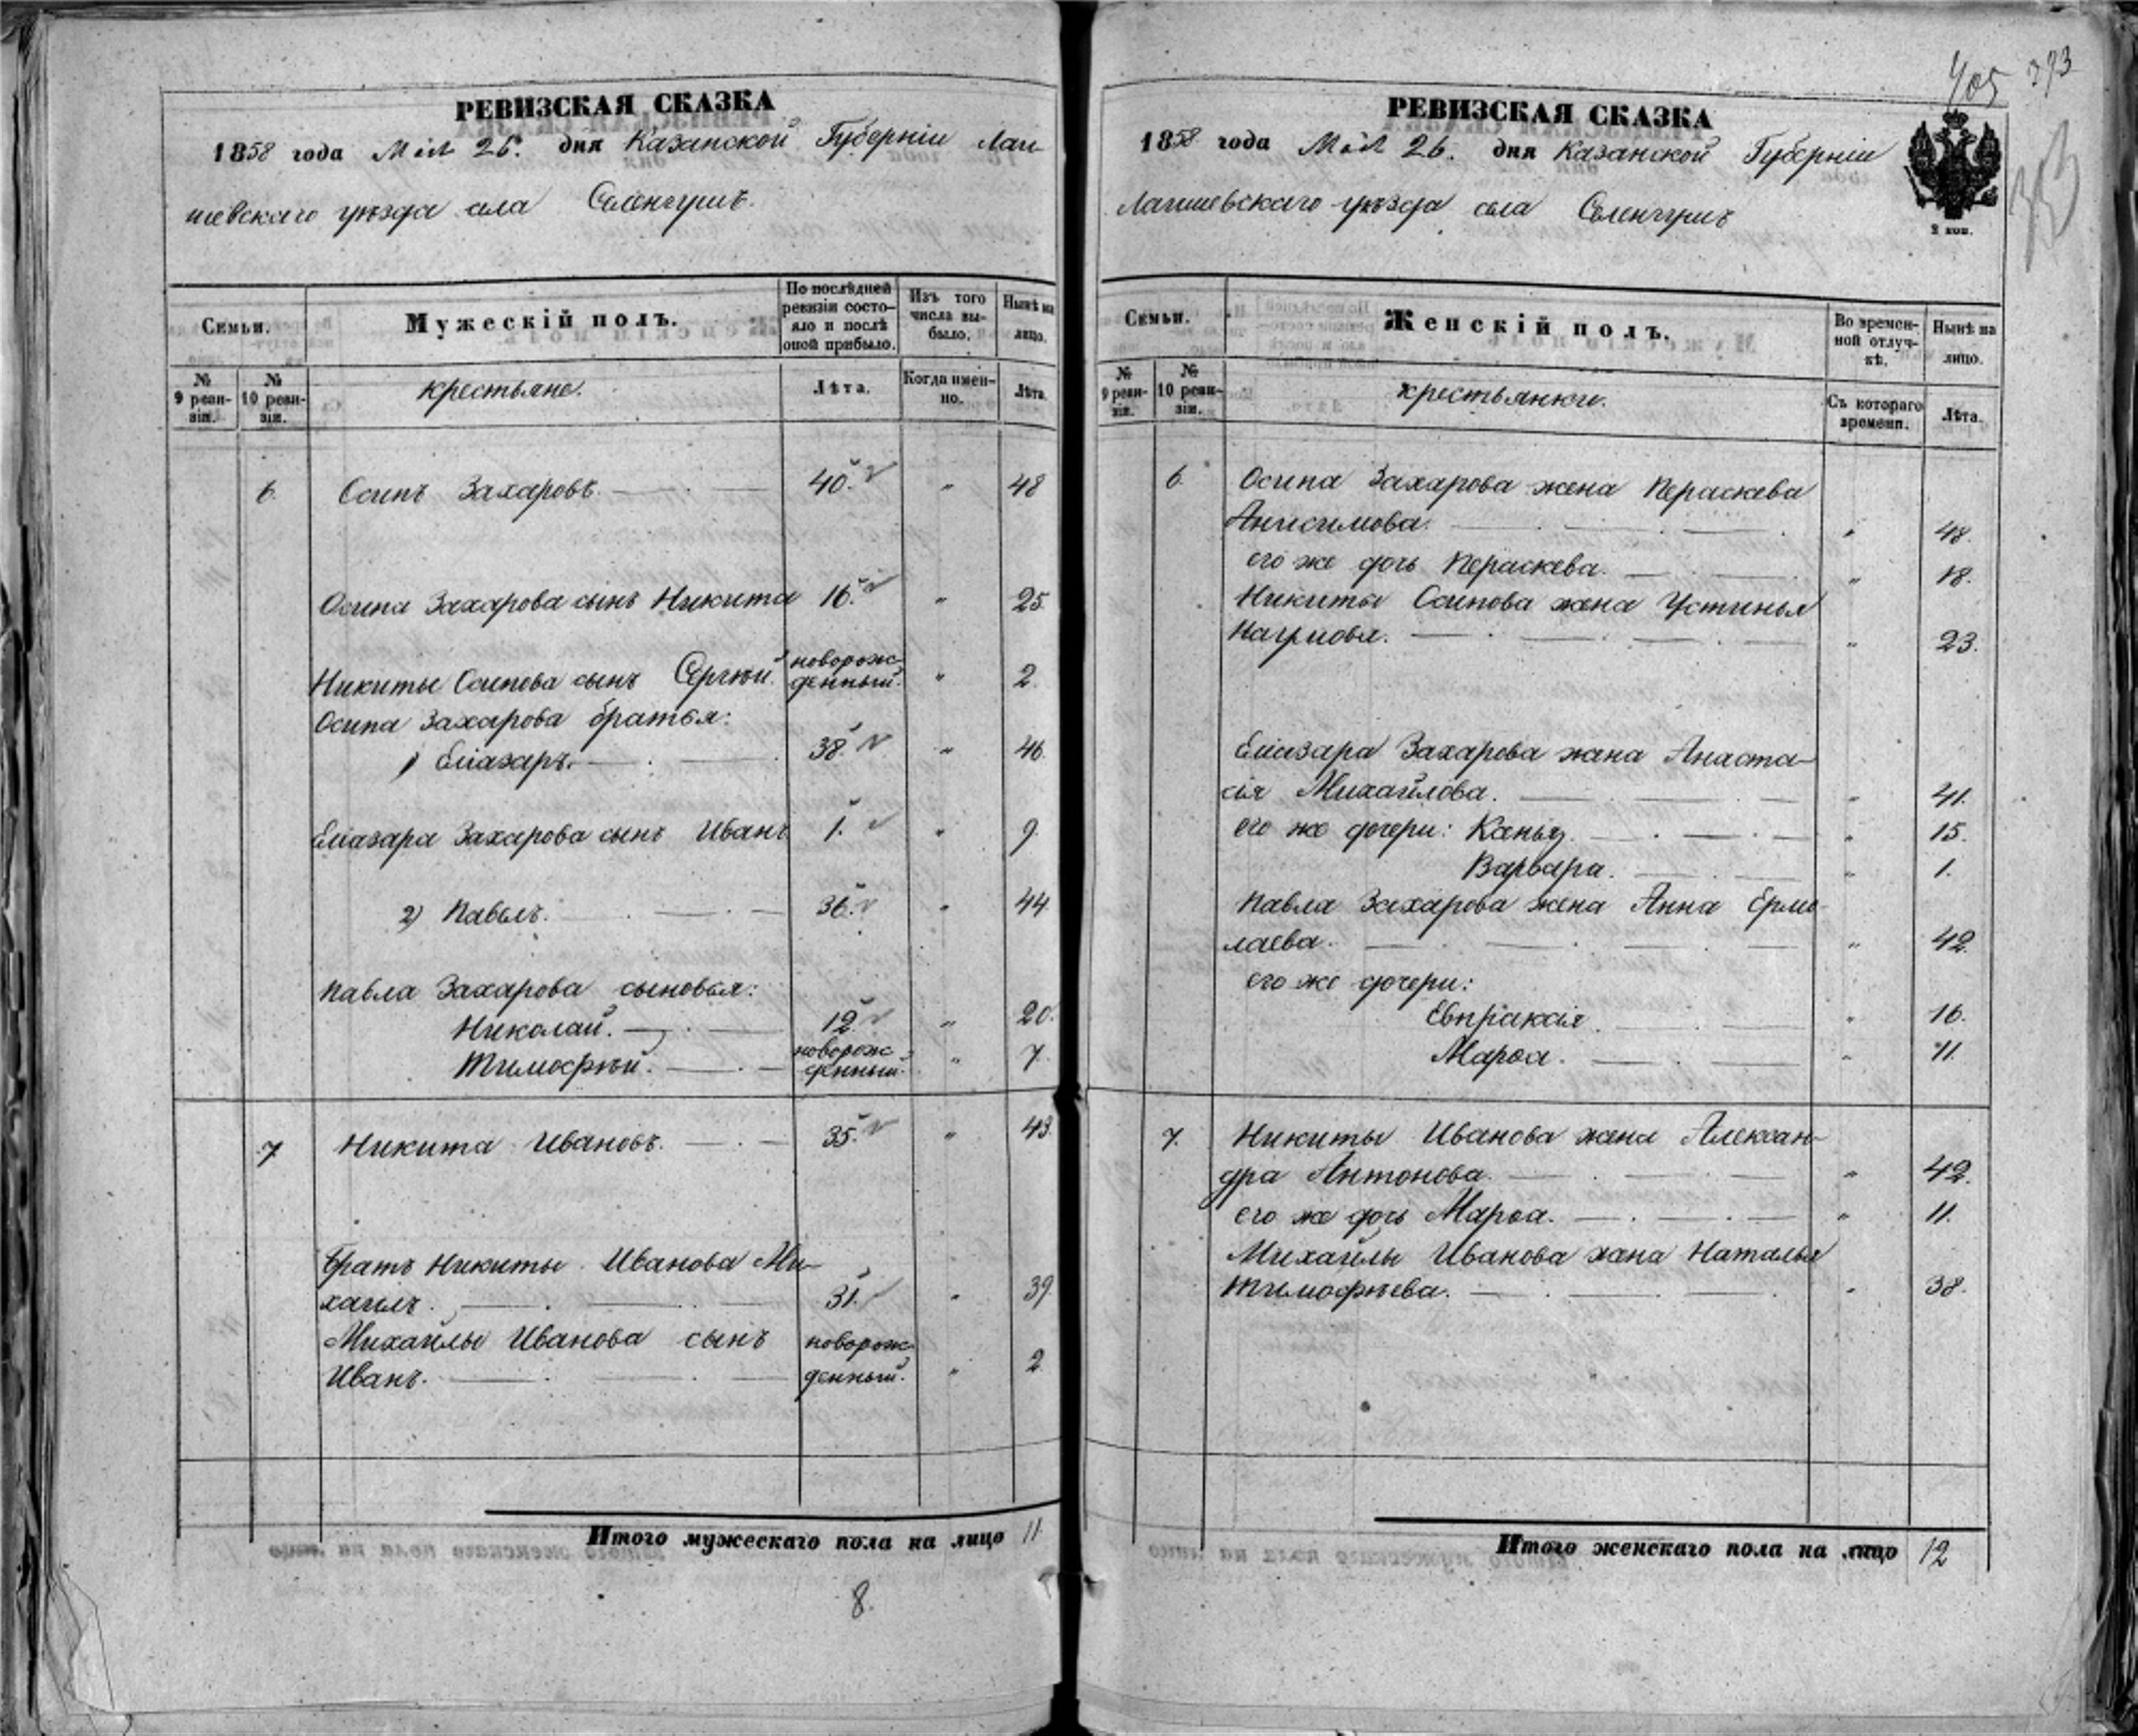 РЕВИЗСКАЯ СКАЗКА
1858 года Мая 26. дня Казанской Губерніи Лаи
шевскаго уѣзда села
Семьи.
Мужескій полъ.
По послѣдней ревизіи состояло и послѣ оной прибыло.
Изъ того числа выбыло.
Нынѣ на лицо.
№ 9 ревизіи.
№ 10 ревизіи.
крестьяне.
Лѣта.
Когда именно.
Лѣта.
6. Осипъ Захаровъ. 40. " 48
Осипа Захарова сынъ Никита 16. " 25.
Никиты Осипова сынъ Сергѣй. новорожденный. " 2.
Осипа Захарова братья:
1) Елиазаръ. 38. " 46.
Елиазара Захарова сынъ Иванъ 1. " 9.
2) Павелъ. 36. " 44.
Павла Захарова сыновья:
Николай. 12. " 20.
Тимофѣй. новорожденный. " 7.
7 Никита Ивановъ. 35. " 43.
Братъ Никиты Иванова Ми-
хаилъ. 31. " 39.
Михайлы Иванова сынъ новорож-
Иванъ. денный. " 2
Итого мужескаго пола на лицо 11.
8.
405 393
РЕВИЗСКАЯ СКАЗКА
1858 года Мая 26. дня Казанской Губерніи
Лаишевскаго уѣзда села
2 коп.
Семьи.
Женскій полъ.
Во временной отлучкѣ.
Нынѣ на лицо.
№ 9 ревизіи.
№ 10 ревизіи.
крестьянки.
Съ котораго времени.
Лѣта.
6. Осипа Захарова жена Пераскева
Анисимова. " 48.
его же дочь Пераскева. " 18.
Никиты Осипова жена Устинья
Наумова. " 23.
Елиазара Захарова жена Анаста-
сія Михайлова. " 41.
его же дочери: " 15.
Варвара. " 1.
Павла Захарова жена Анна Ермо-
лаева. " 42.
его же дочери:
Евпраксія. " 16.
Марѳа. " 11.
7. Никиты Иванова жена Алексан-
дра Антонова. " 42.
его же дочь Марѳа. " 11.
Михайлы Иванова жена Наталья
Тимофѣева. " 38.
Итого женскаго пола на лицо 12